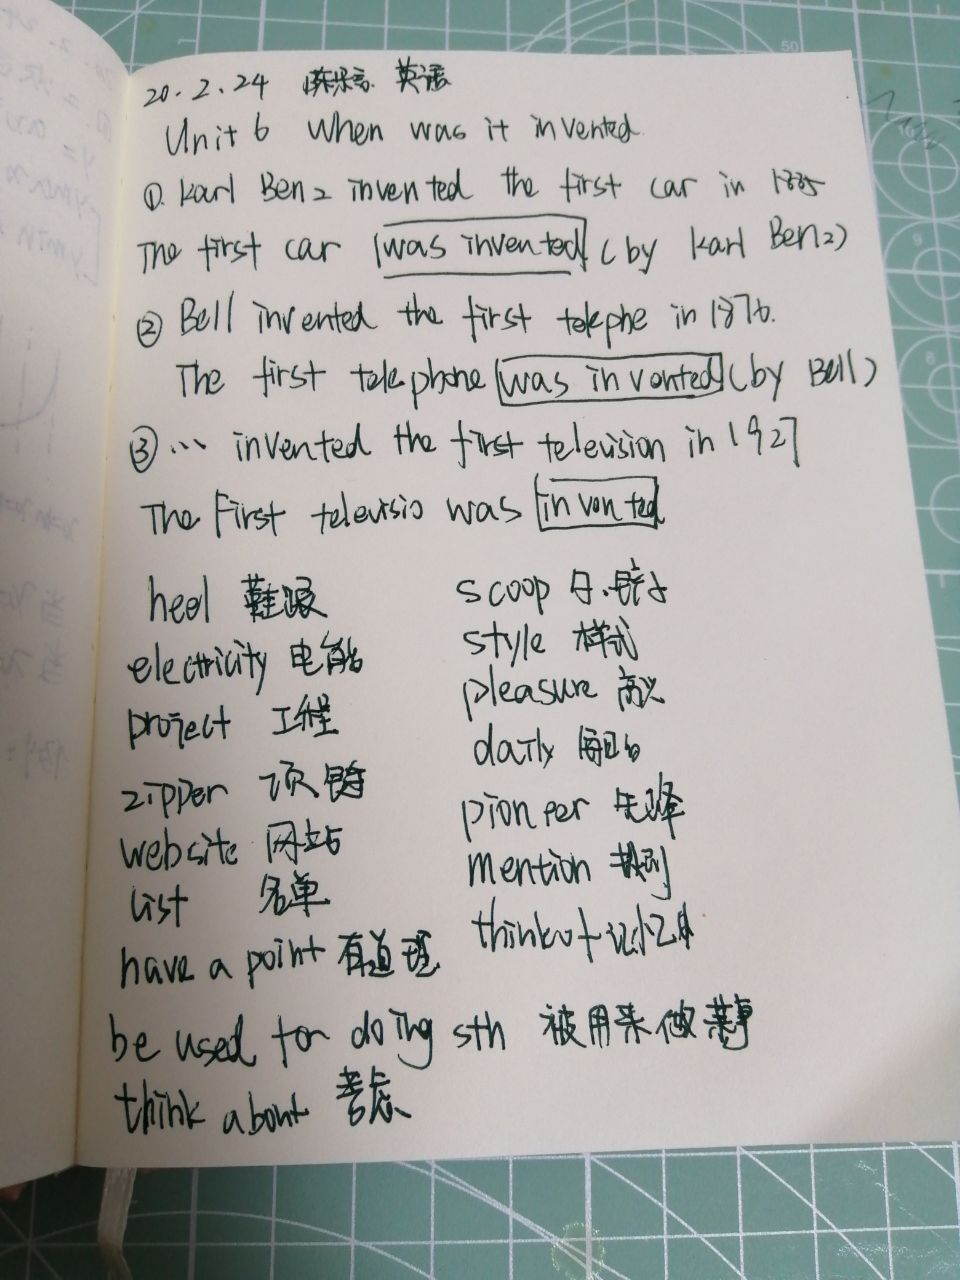 20.2.24 英语
Unit 6 When was it invented.
①. Karl Benz invented the first car in 1885
The first car was invented (by Karl Benz)
② Bell invented the first telephe in 1876.
The first telephone was invented (by Bell)
③ ... invented the first television in 1927
The First televisio was invented
heel 鞋跟
electricity 电能
project 工程
zipper
website 网站
list 名单
have a point 有道理
scoop
style 样式
pleasure 高兴
daily 每日的
pioneer 先锋
mention 提到
think of
be used for doing sth 被用来做某事
think about 考虑